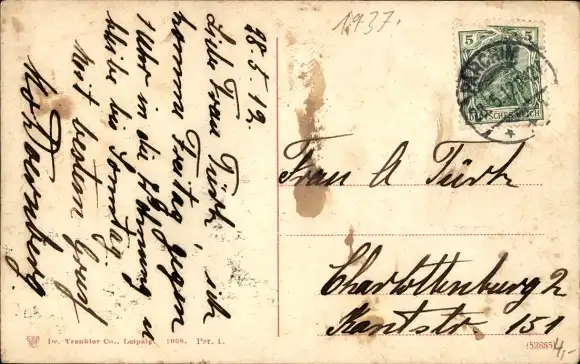 1937.
28.5.12.
Liebe Frau Türk, ich
komme Freitag gegen
1 Uhr in die Wohnung u
bleibe bis Sonntag.
Mit besten Gruß
5
DEUTSCHES REICH
Frau A Türk
Charlottenburg 2
Kantstr. 151
Dr. Trenkler Co., Leipzig. 1908. Per. 1.
(52885)
4,-